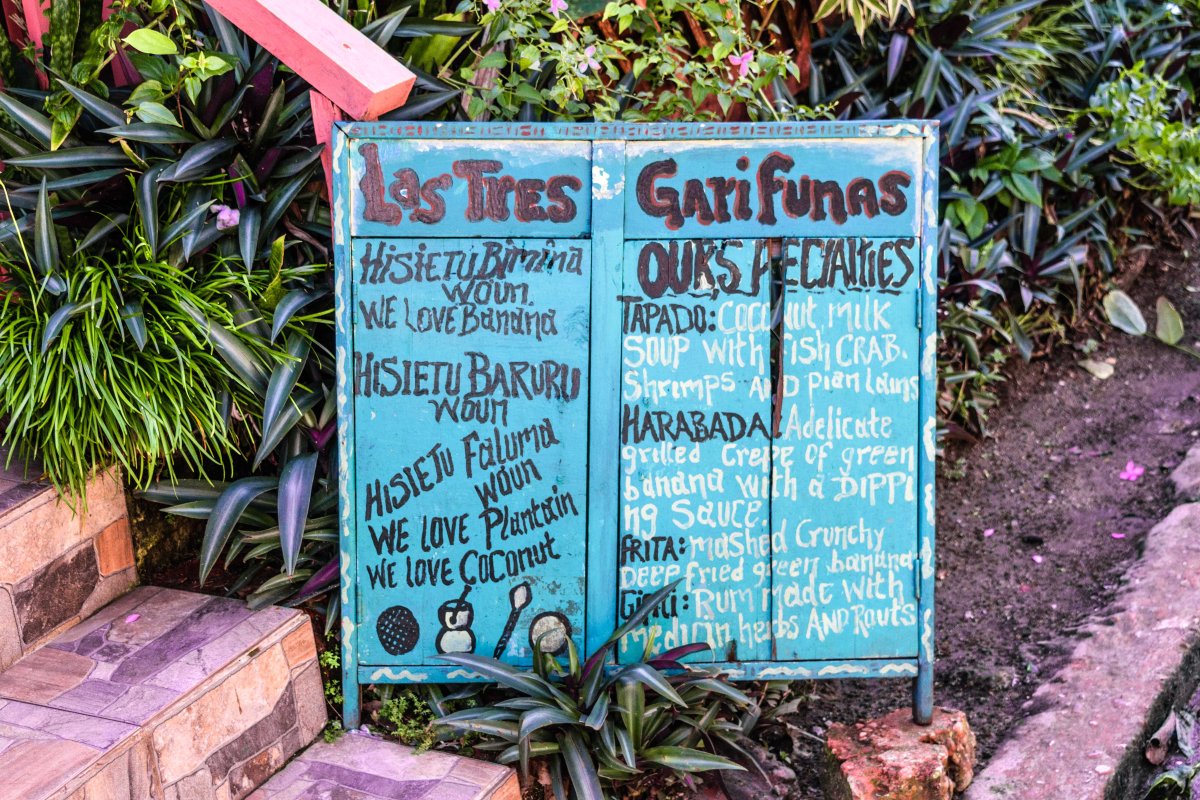 Las Tres Garifunas
Hisietu Bimina
woun.
We Love Banana
Hisietu Baruru
woun
Hisietu Faluma
woun
We love Plantain
We love Coconut
OUR SPECIALTIES
TAPADO: COCONUT MILK
SOUP with FISH CRAB.
Shrimps AND plantains
HARABADA: A delicate
grilled Crepe of green
banana with a DIPPI
ng SAUCE.
FRITA: mashed Crunchy
Deep fried green banana
Gifiti: Rum made with
medicin herbs AND Routs